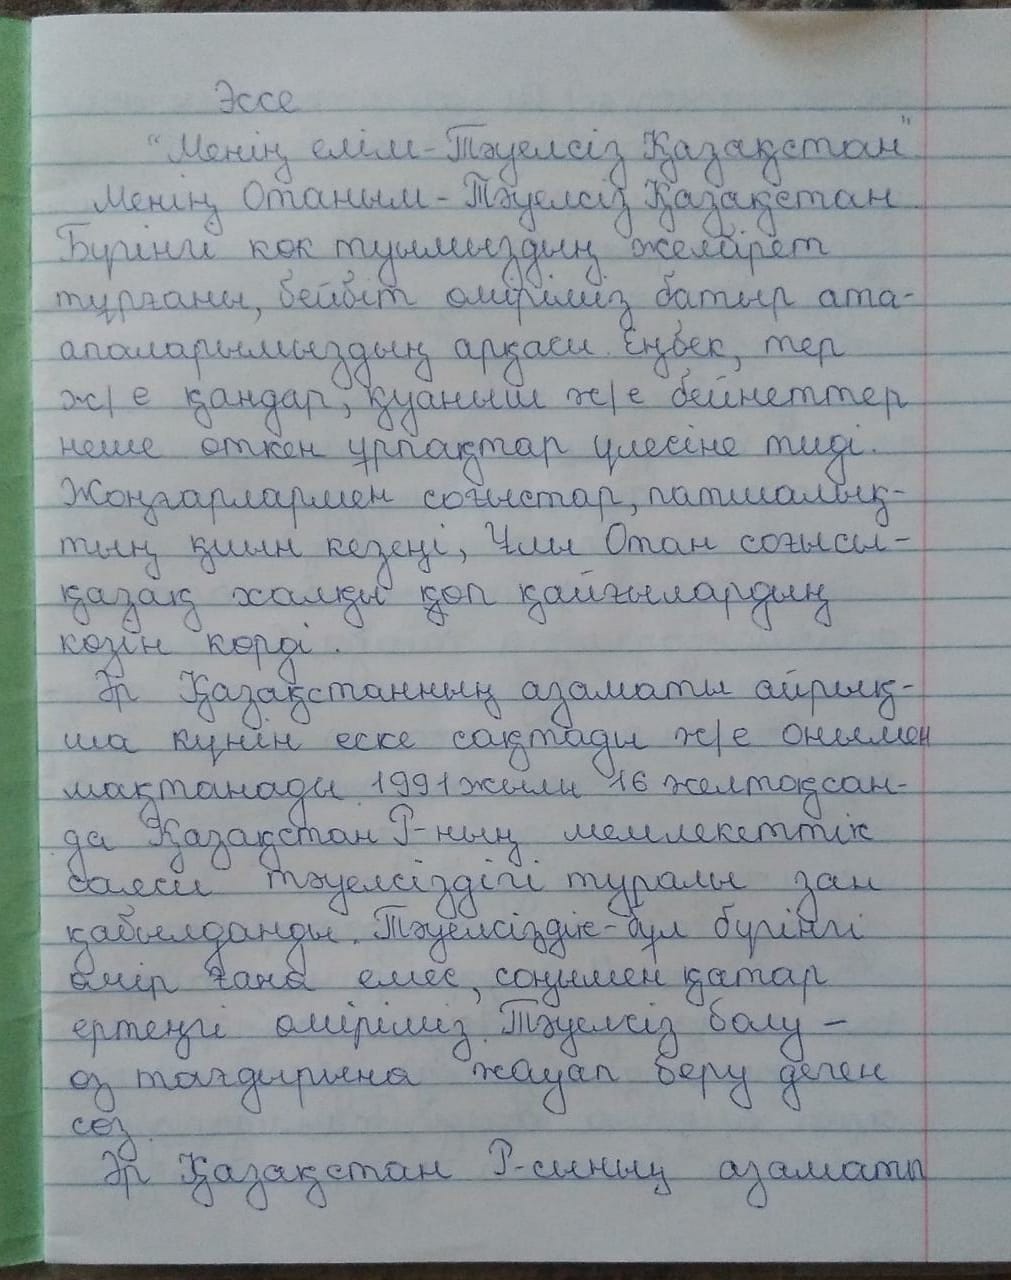 Эссе
"Менің елім-Тәуелсіз Қазақстан"
Менің Отаным-Тәуелсіз Қазақстан.
Бүгінгі көк туымыздың желбірет
тұрғаны, бейбіт өміріміз батыр ата-
апаларымыздың арқасы. Еңбек, тер
ж/е қандар, қуаныш ж/е бейнеттер
неше өткен ұрпақтар үлесіне тиді.
Жоңғарлармен соғыстар, патшалық-
тың қиын кезеңі, Ұлы Отан соғысы-
қазақ халқы қөп қайғылардың
көзін көрді.
Әр Қазақстанның азаматы айрық-
ша күнін еске сақтады ж/е онымен
мақтанады. 1991жылы 16 желтоқсан-
да Қазақстан Р-ның мемлекеттік
саяси тәуелсіздігі туралы зан
қабылданды. Тәуелсіздік-бұл бүгінгі
өмір ғана емес, соңымен қатар
ертеңгі өміріміз. Тәуелсіз болу-
өз тағдырына жауап беру деген
сөз.
Әр Қазақстан Р-сының азаматы